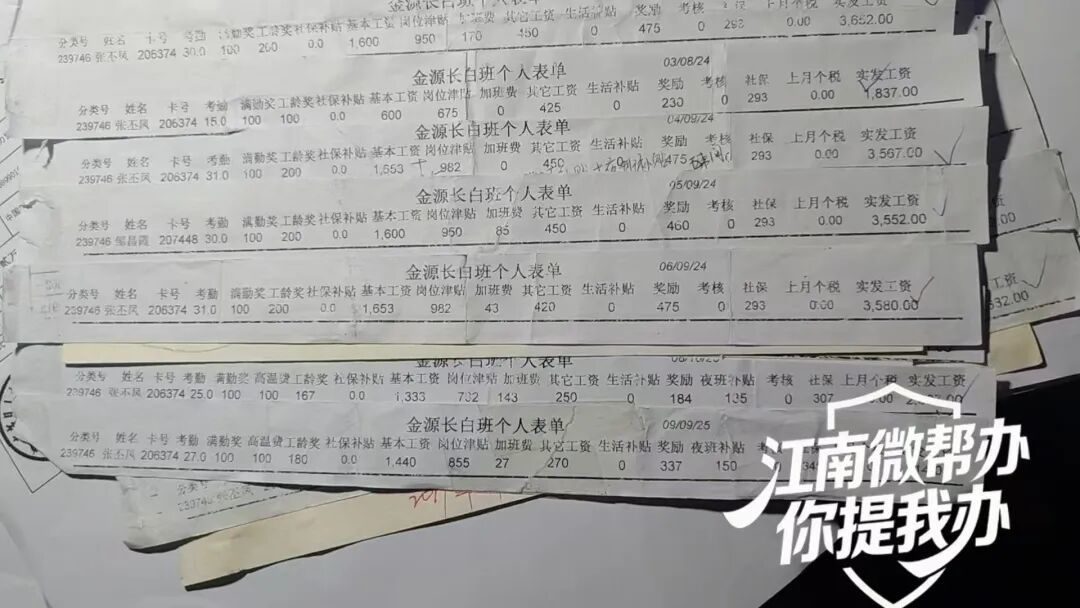 分类号 姓名 卡号 考勤 满勤奖 工龄奖 社保补贴 基本工资 岗位津贴 加班费 其它工资 生活补贴 奖励 考核 社保 上月个税 实发工资
239746 张丕凤 206374 30.0 100 200 0.0 1,600 950 170 450 0 475 0 293 0.00 3,652.00
金源长白班个人表单 03/08/24
分类号 姓名 卡号 考勤 满勤奖 工龄奖 社保补贴 基本工资 岗位津贴 加班费 其它工资 生活补贴 奖励 考核 社保 上月个税 实发工资
239746 张丕凤 206374 15.0 100 100 0.0 600 675 0 425 0 230 0 293 0.00 1,837.00
金源长白班个人表单 04/09/24
分类号 姓名 卡号 考勤 满勤奖 工龄奖 社保补贴 基本工资 岗位津贴 加班费 其它工资 生活补贴 奖励 考核 社保 上月个税 实发工资
239746 张丕凤 206374 31.0 100 200 0.0 1,653 982 0 450 0 475 0 293 0.00 3,567.00
金源长白班个人表单 05/09/24
分类号 姓名 卡号 考勤 满勤奖 工龄奖 社保补贴 基本工资 岗位津贴 加班费 其它工资 生活补贴 奖励 考核 社保 上月个税 实发工资
239746 邹昌霞 207448 30.0 100 200 0.0 1,600 950 85 450 0 460 0 293 0.00 3,552.00
金源长白班个人表单 06/09/24
分类号 姓名 卡号 考勤 满勤奖 工龄奖 社保补贴 基本工资 岗位津贴 加班费 其它工资 生活补贴 奖励 考核 社保 上月个税 实发工资
239746 张丕凤 206374 31.0 100 200 0.0 1,653 982 43 420 0 475 0 293 0.00 3,580.00
工资
332.00
金源长白班个人表单 08/10/25
分类号 姓名 卡号 考勤 满勤奖 高温费 工龄奖 社保补贴 基本工资 岗位津贴 加班费 其它工资 生活补贴 奖励 夜班补贴 考核 社保 上月个税 实发工资
239746 张丕凤 206374 25.0 100 100 167 0.0 1,333 792 143 250 0 184 135 0 307 0.00
金源长白班个人表单 09/09/25
分类号 姓名 卡号 考勤 满勤奖 高温费 工龄奖 社保补贴 基本工资 岗位津贴 加班费 其它工资 生活补贴 奖励 夜班补贴
239746 张丕凤 206374 27.0 100 100 180 0.0 1,440 855 27 270 0 337 150
分类号 姓名
239746 张丕凤
江南微帮办
你提我办